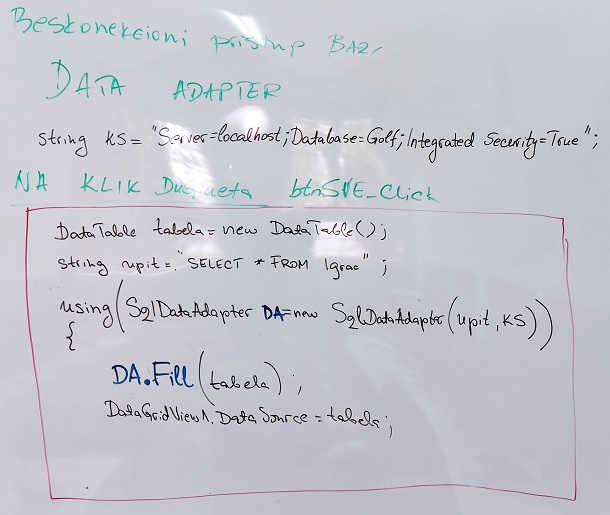 Beskonekcioni pristup BAZI
DATA ADAPTER
string KS= "Server=localhost;Database=Golf;Integrated Security=True";
NA KLIK Dugmeta btnSVE_Click
DataTable tabela = new DataTable();
string upit = "SELECT * FROM Igrac" ;
using(SqlDataAdapter DA=new SqlDataAdapter(upit,KS))
{
DA.Fill(tabela);
DataGridView1.DataSource = tabela;